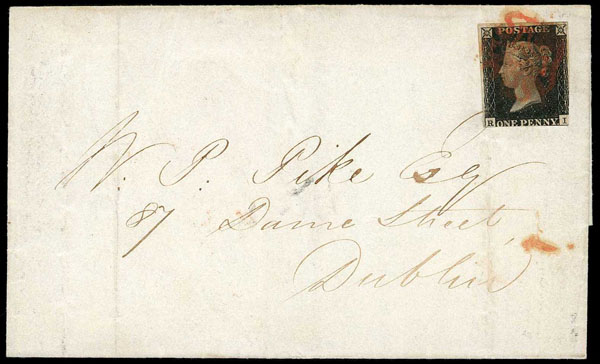 POSTAGE
ONE PENNY
B I
W. P. Pike Esq
87 Dame Street,
Dublin